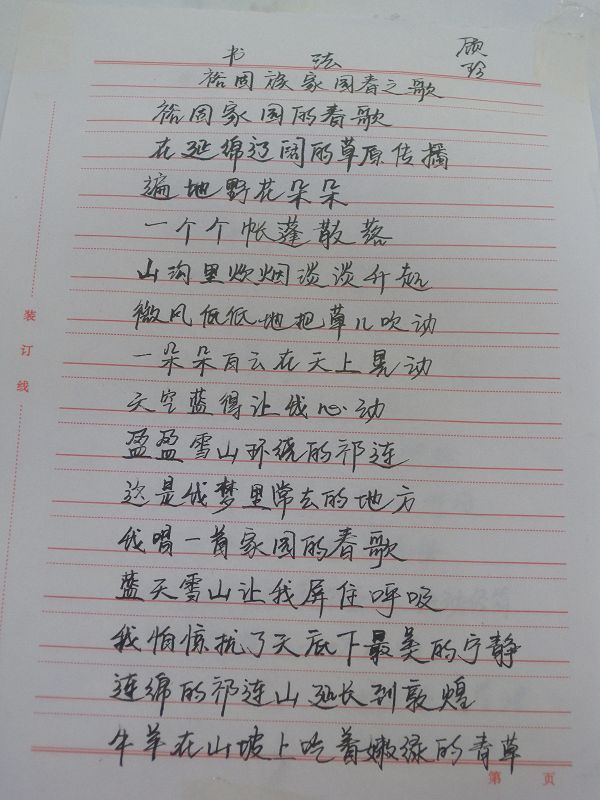 书 法 顾玲
裕固族家园春之歌
裕固家园的春歌
在延绵辽阔的草原传播
遍地野花朵朵
一个个帐蓬散落
山沟里炊烟淡淡升起
微风低低地把草儿吹动
一朵朵白云在天上晃动
天空蓝得让我心动
盈盈雪山环绕的祁连
这是我梦里常去的地方
我唱一首家园的春歌
蓝天雪山让我屏住呼吸
我怕惊扰了天底下最美的宁静
连绵的祁连山延长到敦煌
牛羊在山坡上吃着嫩绿的青草
装订线
第 页